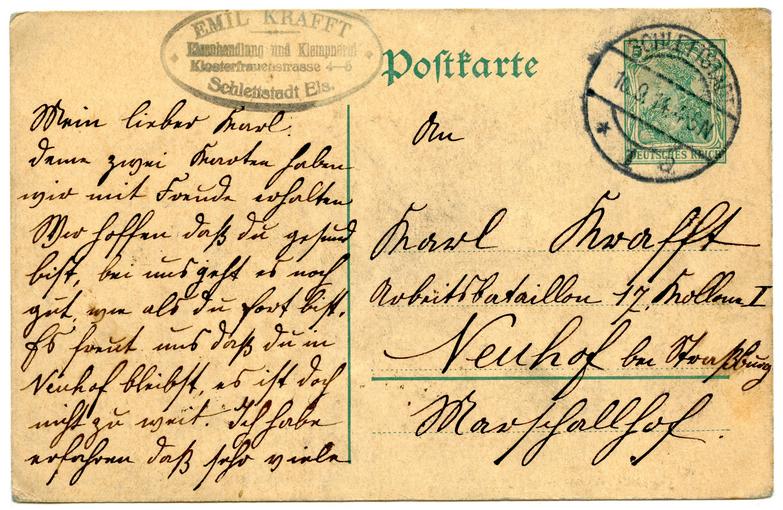 EMIL KRAFFT
Eisenhandlung und Klempnerei
Klosterfrauenstrasse 4-6
Schlettstadt Els.
Postkarte
SCHLETTSTADT
DEUTSCHES REICH
Mein lieber Karl.
deine zwei Karten haben
wir mit Freude erhalten
Wir hoffen daß du gesund
bist, bei uns geht es noch
gut, wie als du fort bist.
Es freut uns daß du in
Neuhof bleibst, es ist doch
nicht zu weit. Ich habe
erfahren daß sehr viele
An
Karl Krafft
Arbeitsbataillon 17, Kollone I
Neuhof bei Straßburg
Marschallhof.